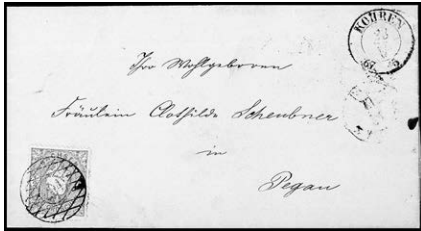 KOHREN
Ihro Wohlgeboren
Fräulein Clothilde Scheubner
in
Pegau